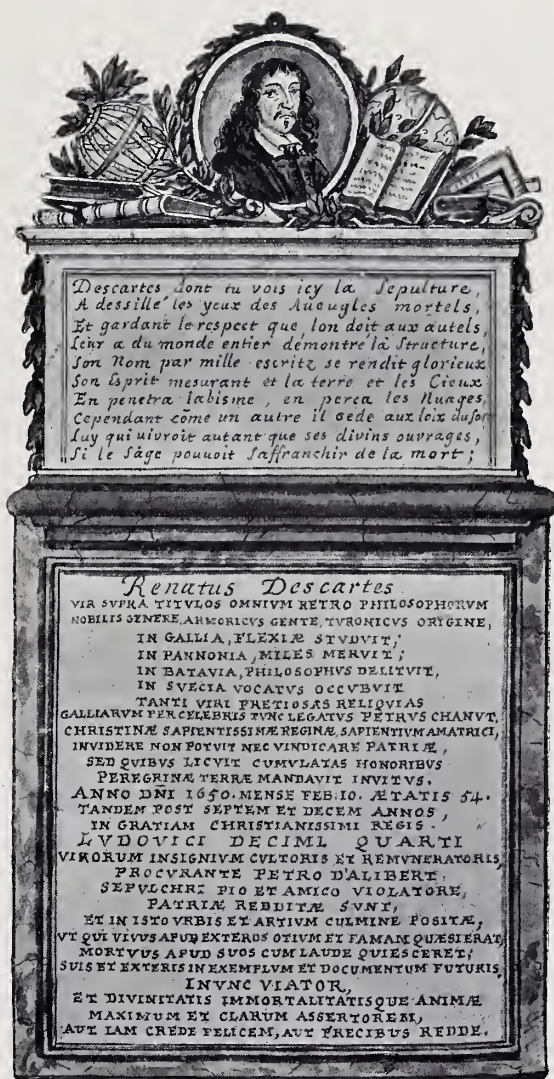 Descartes dont tu vois icy la Sepulture,
A dessillé les yeux des Aueugles mortels,
Et gardant le respect que lon doit aux autels,
Leur a du monde entier demontré la Structure,
Son Nom par mille escritz se rendit glorieux
Son Esprit mesurant et la terre et les Cieux
En penetra labisme, en perca les Nuages,
Cependant côme un autre il cede aux loix du sort
Luy qui uivroit autant que ses divins ouvrages,
Si le Sâge pouuoit Saffranchir de la mort;
Renatus Descartes
VIR SVPRA TITVLOS OMNIVM RETRO PHILOSOPHORVM
NOBILIS GENERE, ARMORICVS GENTE, TVRONICVS ORIGINE,
IN GALLIA, FLEXIÆ STVDVIT;
IN PANNONIA, MILES MERVIT;
IN BATAVIA, PHILOSOPHVS DELITVIT,
IN SVECIA VOCATVS OCCVBVIT
TANTI VIRI PRETIOSAS RELIQVIAS
GALLIARVM PERCELEBRIS TVNC LEGATVS PETRVS CHANVT,
CHRISTINÆ SAPIENTISSIMÆ REGINÆ, SAPIENTIVM AMATRICI,
INVIDERE NON POTVIT NEC VINDICARE PATRIÆ,
SED QUIBVS LICVIT CVMVLATAS HONORIBVS
PEREGRINÆ TERRÆ MANDAVIT INVITVS.
ANNO DÑI 1650. MENSE FEB: 10. ÆTATIS 54.
TANDEM POST SEPTEM ET DECEM ANNOS,
IN GRATIAM CHRISTIANISSIMI REGIS.
LVDOVICI DECIMI QUARTI
VIRORUM INSIGNIVM CVLTORIS ET REMVNERATORIS,
PROCVRANTE PETRO D'ALIBERT.
SEPVLCHRI PIO ET AMICO VIOLATORE,
PATRIÆ REDDITÆ SVNT,
ET IN ISTO VRBIS ET ARTIVM CVLMINE POSITÆ,
VT QUI VIVVS APVD EXTEROS OTIVM ET FAMAM QUÆSIERAT,
MORTVVS APVD SVOS CVM LAVDE QVIESCERET;
SVIS ET EXTERIS IN EXEMPLVM ET DOCVMENTVM FVTVRIS,
I NVNC VIATOR,
ET DIVINITATIS IMMORTALITATISQVE ANIMÆ
MAXIMVM ET CLARVM ASSERTOREM,
AVT IAM CREDE FELICEM, AVT PRECIBVS REDDE.